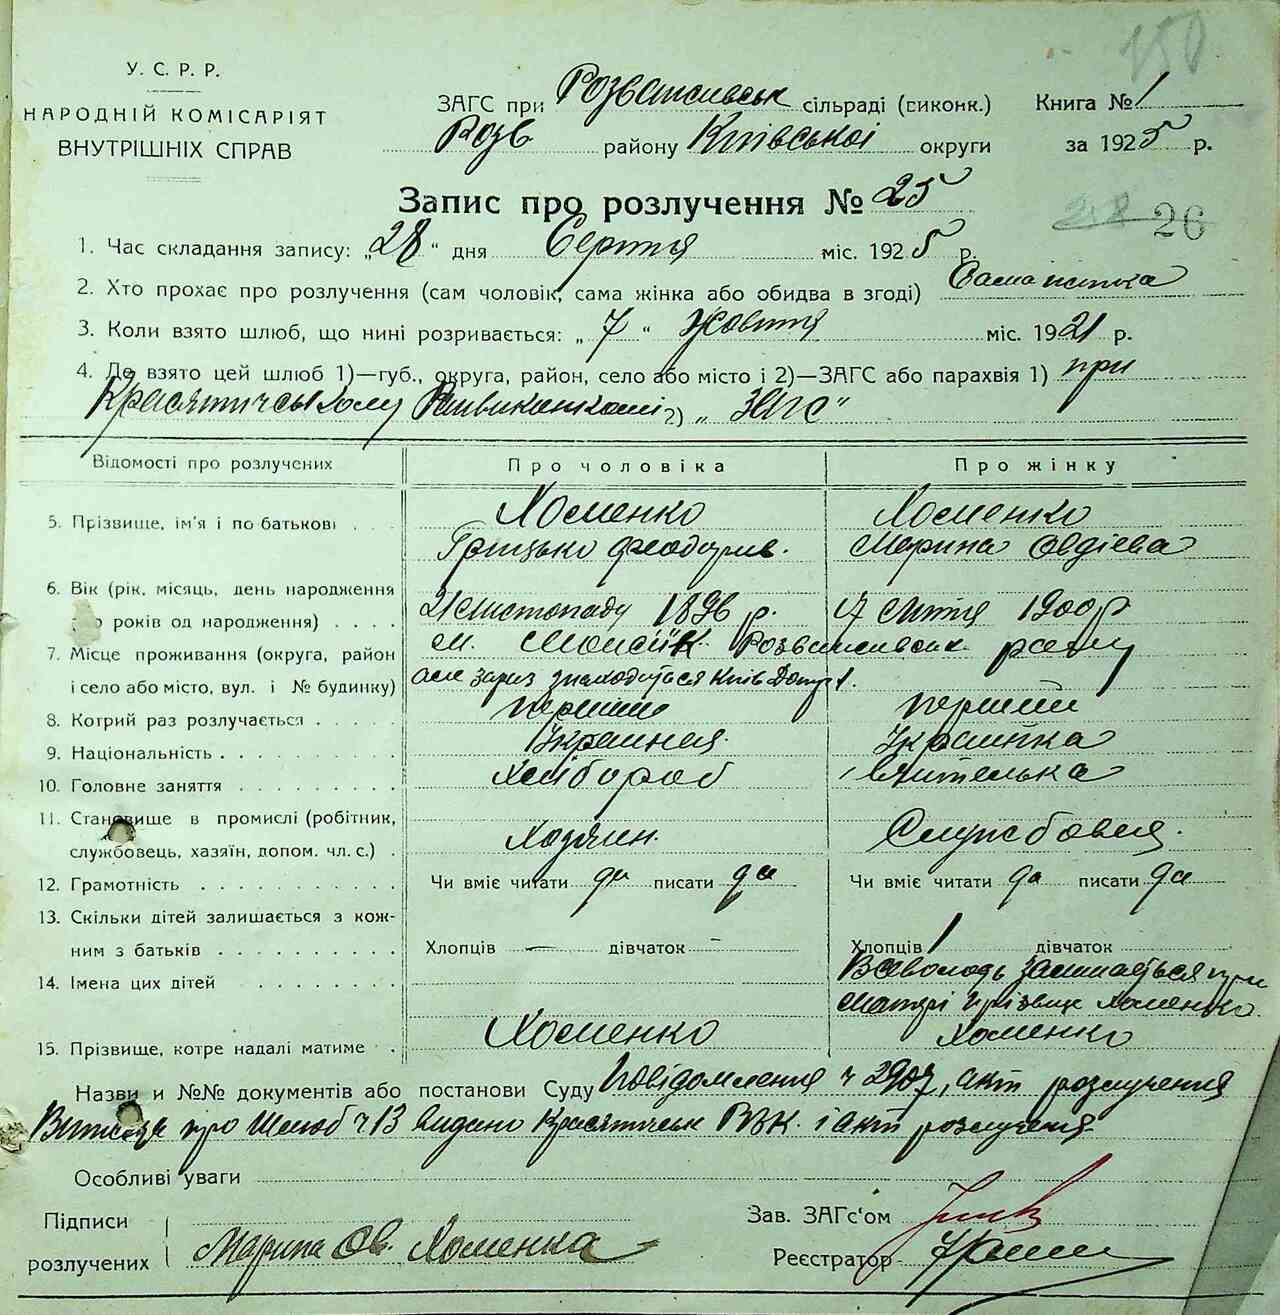 150
У. С. Р. Р.
НАРОДНІЙ КОМІСАРІЯТ
ВНУТРІШНІХ СПРАВ
ЗАГС при Розваживськ сільраді (виконк.) Книга № 1
Розв району Київської округи за 1925 р.
Запис про розлучення № 25
26
1. Час складання запису: „28“ дня Серпня міс. 1925 р.
2. Хто прохає про розлучення (сам чоловік, сама жінка або обидва в згоді) Сама жінка
3. Коли взято шлюб, що нині розривається: „7“ Жовтня міс. 1921 р.
4. Де взято цей шлюб 1)—губ., округа, район, село або місто і 2)—ЗАГС або парахвія 1) при
Красятичському 2) „ЗАГС“
Відомості про розлучених Про чоловіка Про жінку
5. Прізвище, ім'я і по батькові Хоменко Хоменко
Грицько Феодорів. Марина Овдієва
6. Вік (рік, місяць, день народження 21 листопаду 1896 р. 17 лютня 1900 р
років од народження)
7. Місце проживання (округа, район м. Розваживськ району
і село або місто, вул. і № будинку) але зараз знаходиться Київ Допр 1.
8. Котрий раз розлучається перший перший
9. Національність Українка
10. Головне заняття Хлібороб вчителька
11. Становище в промислі (робітник, Хозяин. Службовця.
службовець, хазяїн, допом. чл. с.)
12. Грамотність Чи вміє читати да писати да Чи вміє читати да писати да
13. Скільки дітей залишається з кож-
ним з батьків Хлопців — дівчаток — Хлопців 1 дівчаток
14. Імена цих дітей Всеволодъ залишається при
матері прізвище Хоменко.
15. Прізвище, котре надалі матиме Хоменко Хоменко
Назви и №№ документів або постанови Суду Повідомлення ч 2907, акт розлучення
Витяг про Шлюб ч 13 видано Красятичськ РВК. і акт розлучення
Особливі уваги
Підписи
розлучених Марина Ов. Хоменка
Зав. ЗАГс'ом
Реєстратор